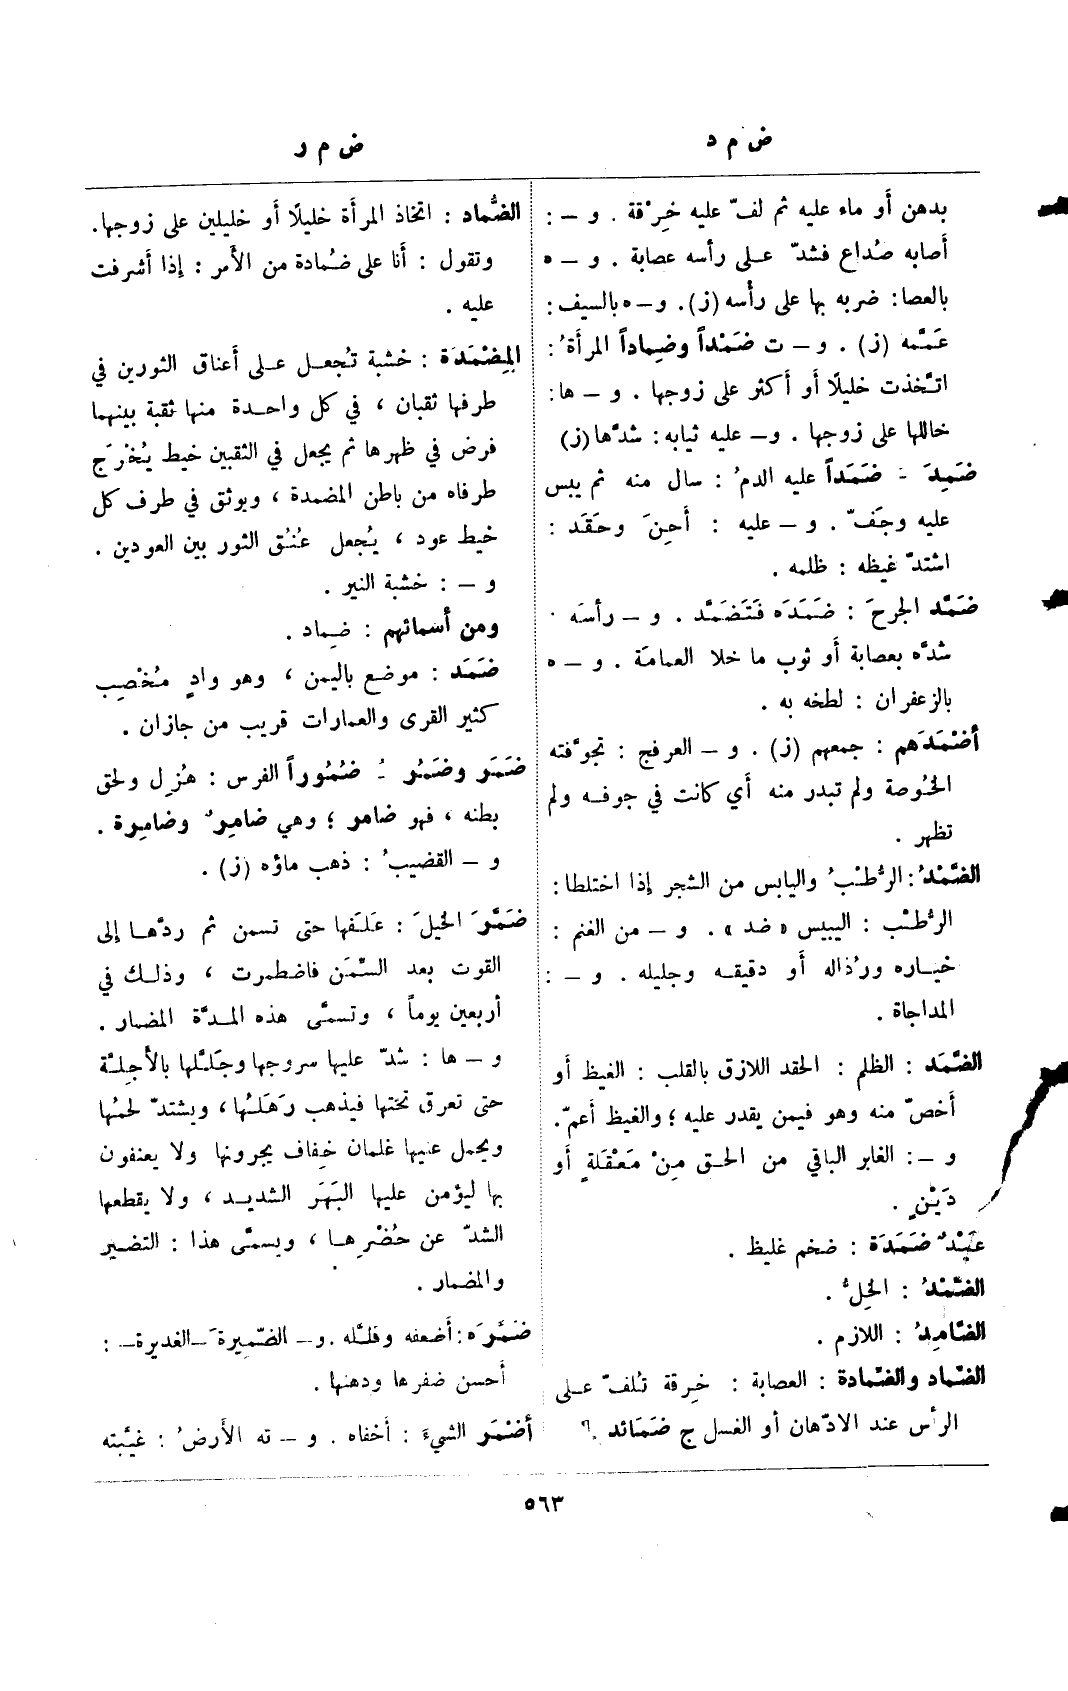 ض م د
بدهن أو ماء عليه ثم لفّ عليه خِرْقة . و – :
أصابه صُداع فشدّ على رأسه عصابة . و – ه
بالعصا : ضربه بها على رأسه (ز) . و – ه بالسيف :
عَمَّمه (ز) . و – ت ضَمْداً وضِماداً المرأةُ :
اتَّخذت خليلًا أو أكثر على زوجها . و – ها :
خاللها على زوجها . و – عليه ثيابه : شدَّها (ز)
ضَمِدَ َ ضَمَداً عليه الدمُ : سال منه ثم يبس
عليه وجَفّ . و – عليه : أَحِنَ وحَقَد :
اشتدّ غيظه : ظلمه .
ضَمَّد الجرحَ : ضَمَدَه فَتَضَمَّد . و – رأسَه .
شدَّه بعصابة أو ثوب ما خلا العمامَة . و – ه
بالزعفران : لطخه به .
أضْمَدَهم : جمعهم (ز) . و – العرفج : تجوَّفته
الخُوصة ولم تبدر منه أي كانت في جوفه ولم
تظهر .
الضَّمْدُ : الرُّطْبُ واليابس من الشجر إذا اختلطا :
الرُّطْب : اليبيس « ضد » . و – من الغنم :
خياره ورُذاله أو دقيقه وجليله . و – :
المداجاة .
الضَّمَد : الظلم : الحقد اللازق بالقلب : الغيظ أو
أخصّ منه وهو فيمن يقدر عليه ؛ والغيظ أعمّ .
و – : الغابر الباقي من الحق مِنْ مَعْقَلةٍ أو
دَيْنٍ .
عَبْدٌ ضَمَدَة : ضخم غليظ .
الضِّمْدُ : الخِلُّ .
الضَّامِدُ : اللازم .
الضِّماد والضِّمادة : العصابة : خِرقة تُلفّ على
الرأس عند الادّهان أو الغسل ج ضَمَائد .
ض م ر
الضُّماد : اتخاذ المرأة خليلًا أو خليلين على زوجها .
وتقول : أنا على ضُمادة من الأمر : إذا أشرفت
عليه .
المِضْمَدَة : خشبة تُجعل على أعناق الثورين في
طرفها ثقبان ، في كل واحدة منها ثقبة بينهما
فرض في ظهرها ثم يجعل في الثقبين خيط يُخْرَج
طرفاه من باطن المضمدة ، ويوثق في طرف كل
خيط عود ، يُجعل عُنُق الثور بين العودين .
و – : خشبة النير .
ومن أسمائهم : ضِماد .
ضَمَد : موضع باليمن ، وهو وادٍ مُخْصِب
كثير القرى والعمارات قريب من جازان .
ضَمَر وضَمُر ُ ضُمُوراً الفرس : هُزِل ولحق
بطنه ، فهو ضامر ؛ وهي ضامِرٌ وضامِرة .
و – القضيبُ : ذهب ماؤه (ز) .
ضَمَّرَ الخيلَ : عَلَفها حتى تسمن ثم ردَّها إلى
القوت بعد السِّمَن فاضطمرت ، وذلك في
أربعين يوماً ، وتسمَّى هذه المدَّة المضمار .
و – ها : شدّ عليها سروجها وجَلَّلها بالأَجِلَّة
حتى تعرق تحتها فيذهب رَهَلُها ، ويشتدّ لحمُها
ويحمل عليها غلمان خِفاف يجرونها ولا يعنفون
بها ليؤمن عليها البَهَر الشديد ، ولا يقطعها
الشدّ عن حُضْرِها ، ويسمَّى هذا : التضمير
والمضمار .
ضَمَّرَه : أضعفه وقلَّله . و – الضَّميرةَ – الغديرة – :
أحسن ضفرها ودهنها .
أضْمَر الشيءَ : أخفاه . و – ته الأرضُ : غيَّبته
٥٦٣